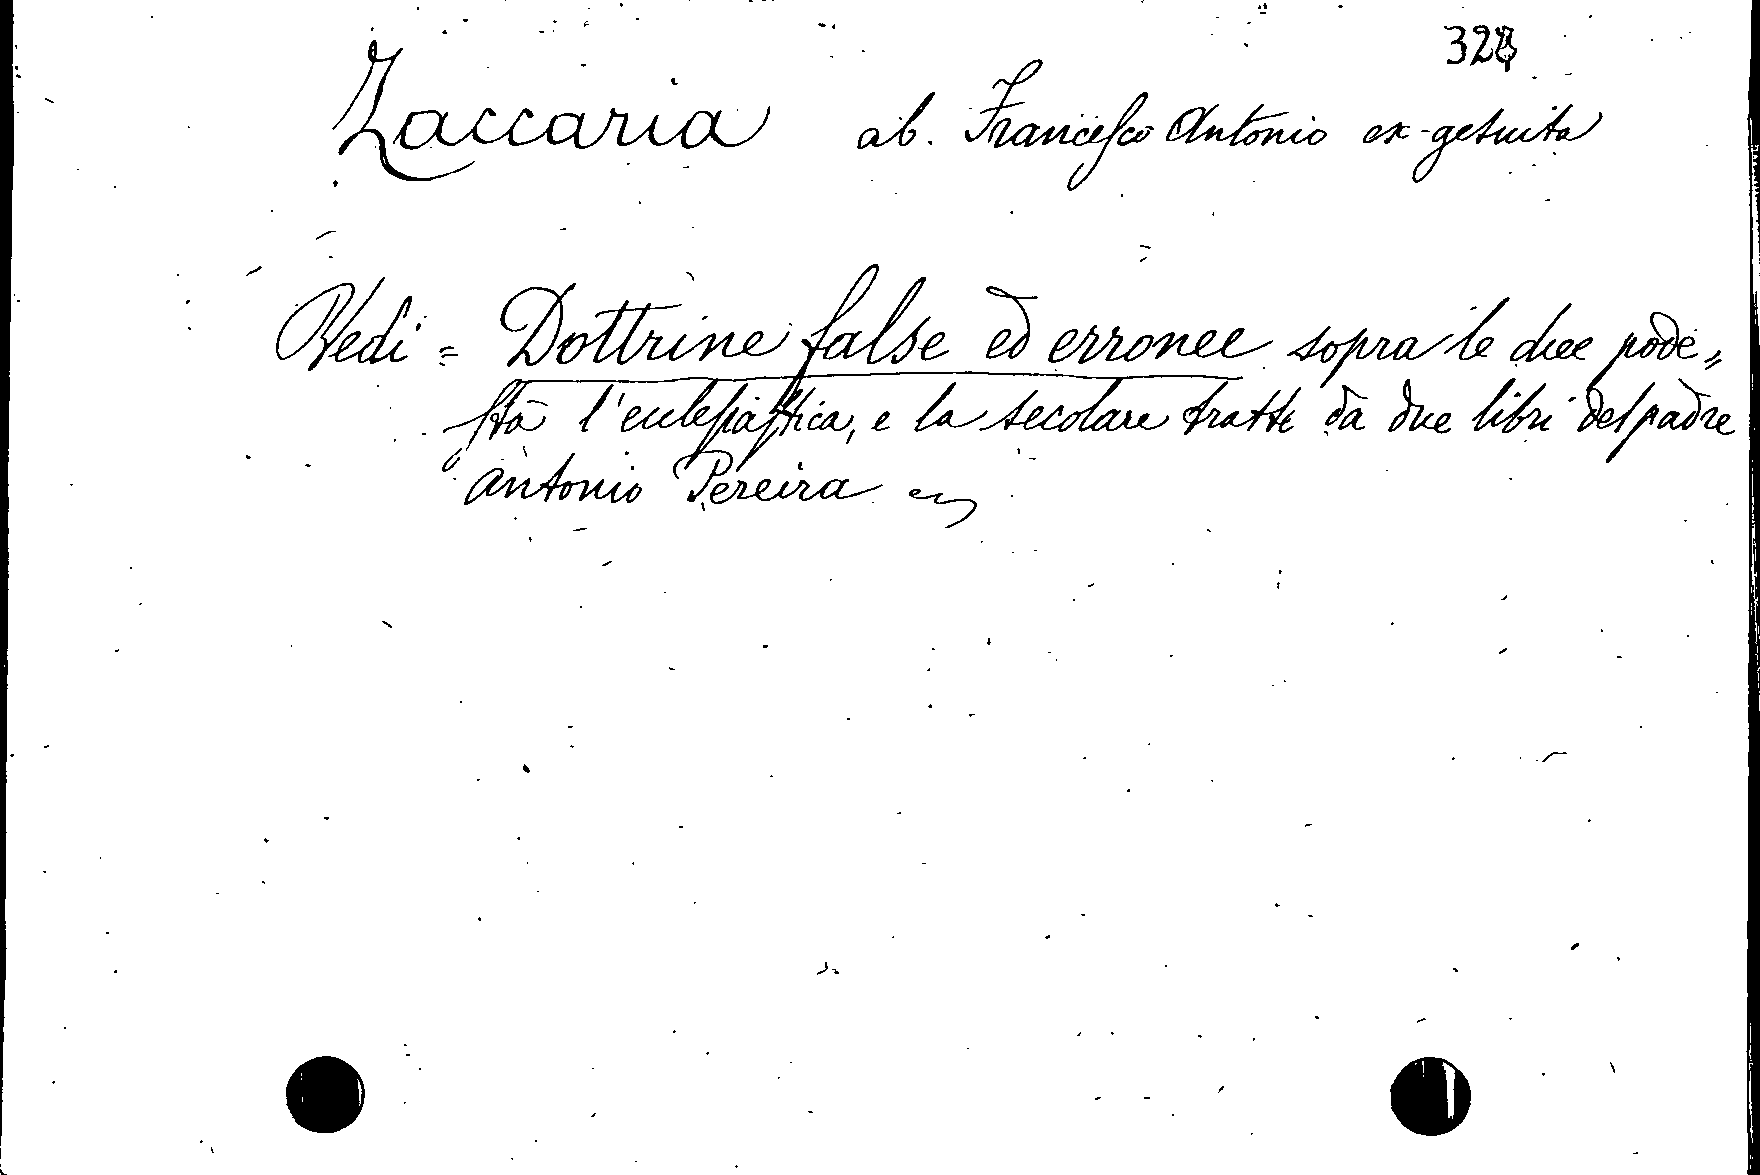 328
Zaccaria ab. Francesco Antonio ex-gesuita
Vedi = Dottrine false ed erronee sopra le due pode=
stà l'eclesiastica, e la secolare tratte da due libri del padre
Antonio Pereira